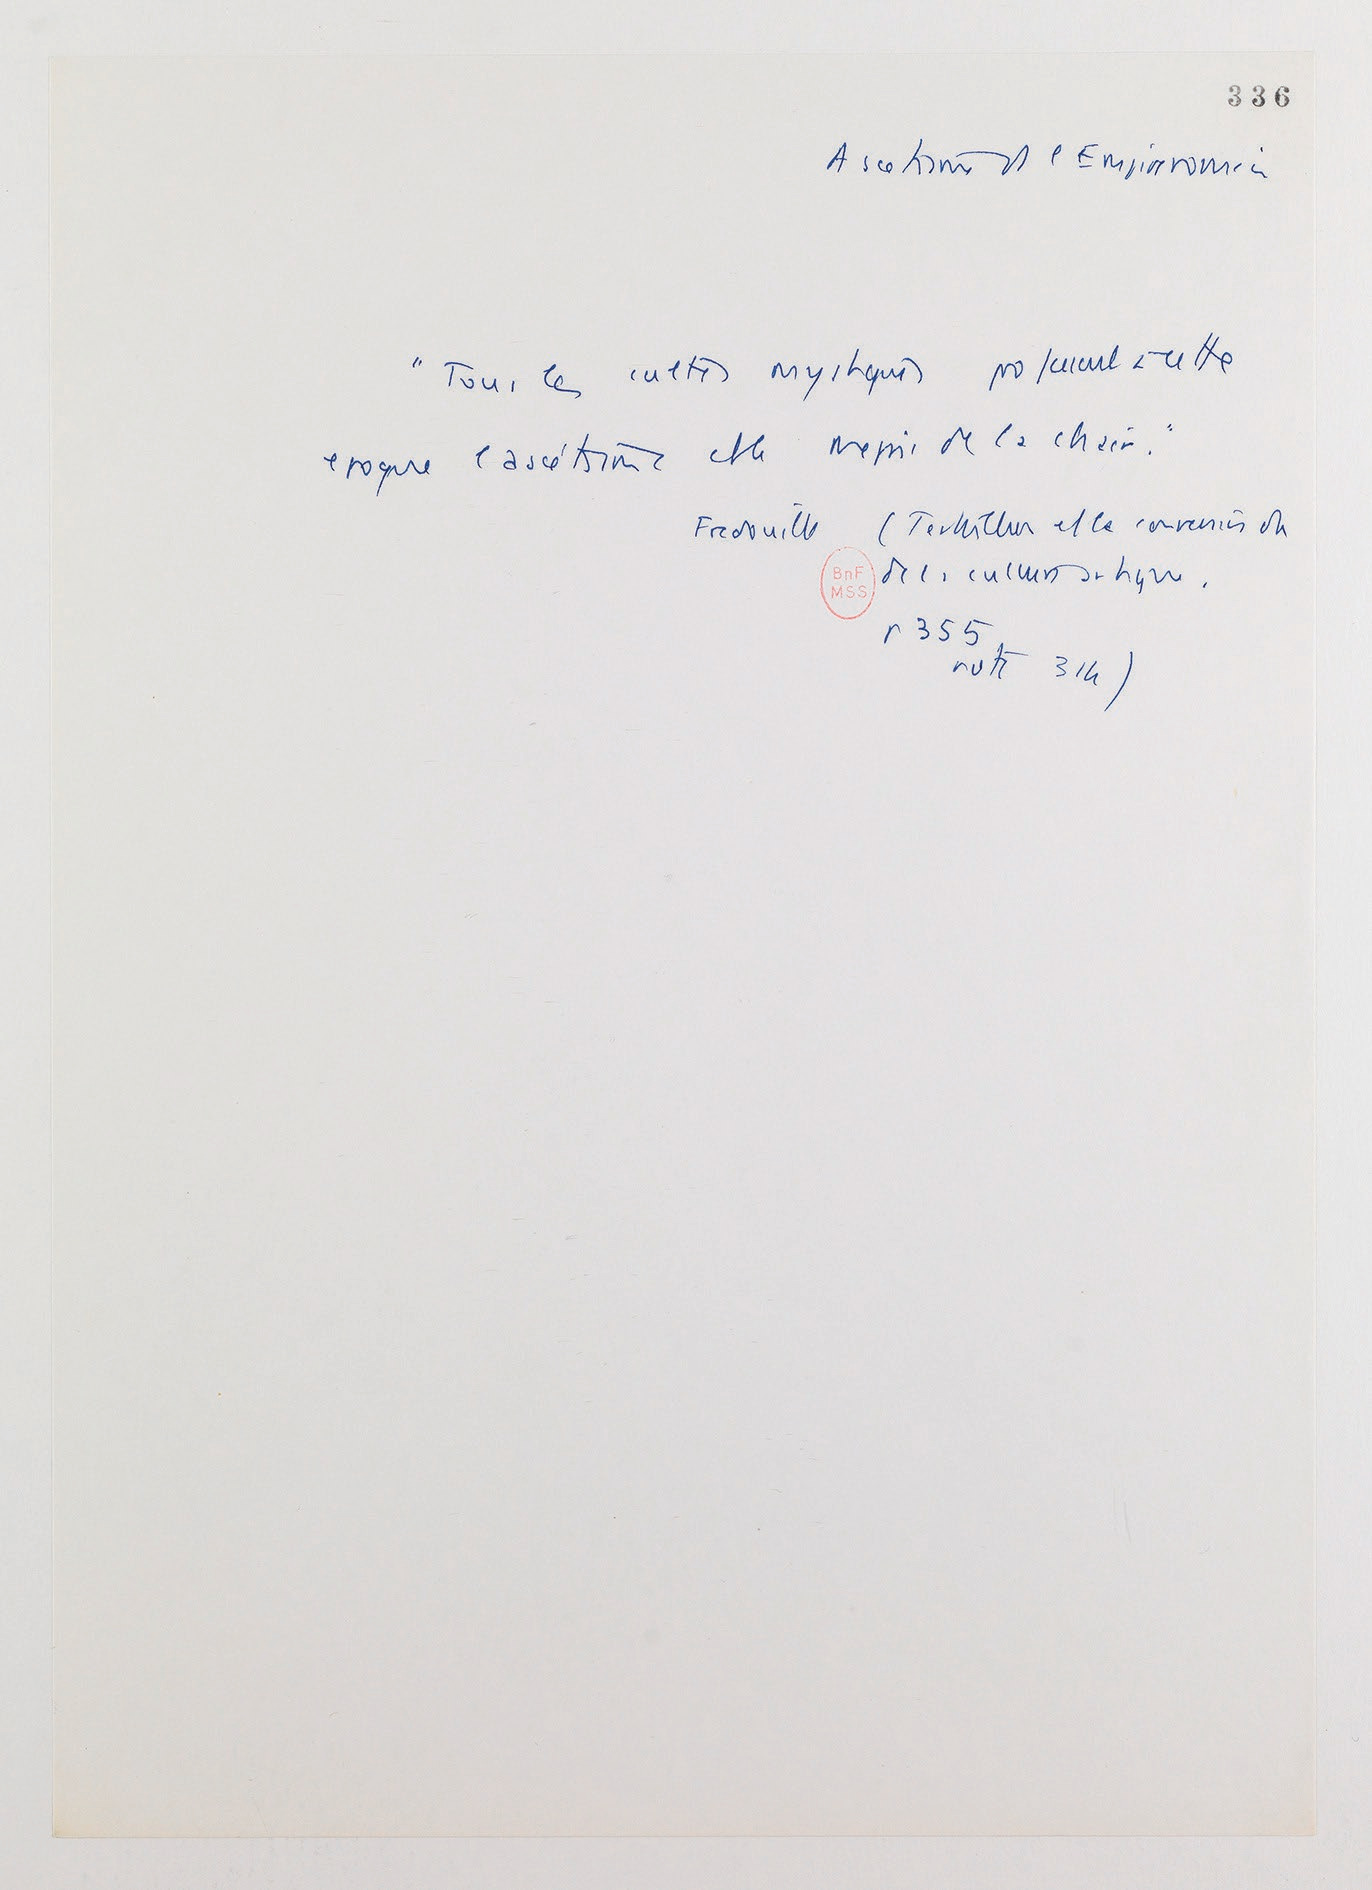 336
Ascétisme ds l'Empire romain
"Tous les cultes mystiques professent à cette
époque l'ascétisme et le mépris de la chair."
Fredouille (Tertullien et la conversion de
de la culture antique.
BnF
MSS
p 355
note 314)